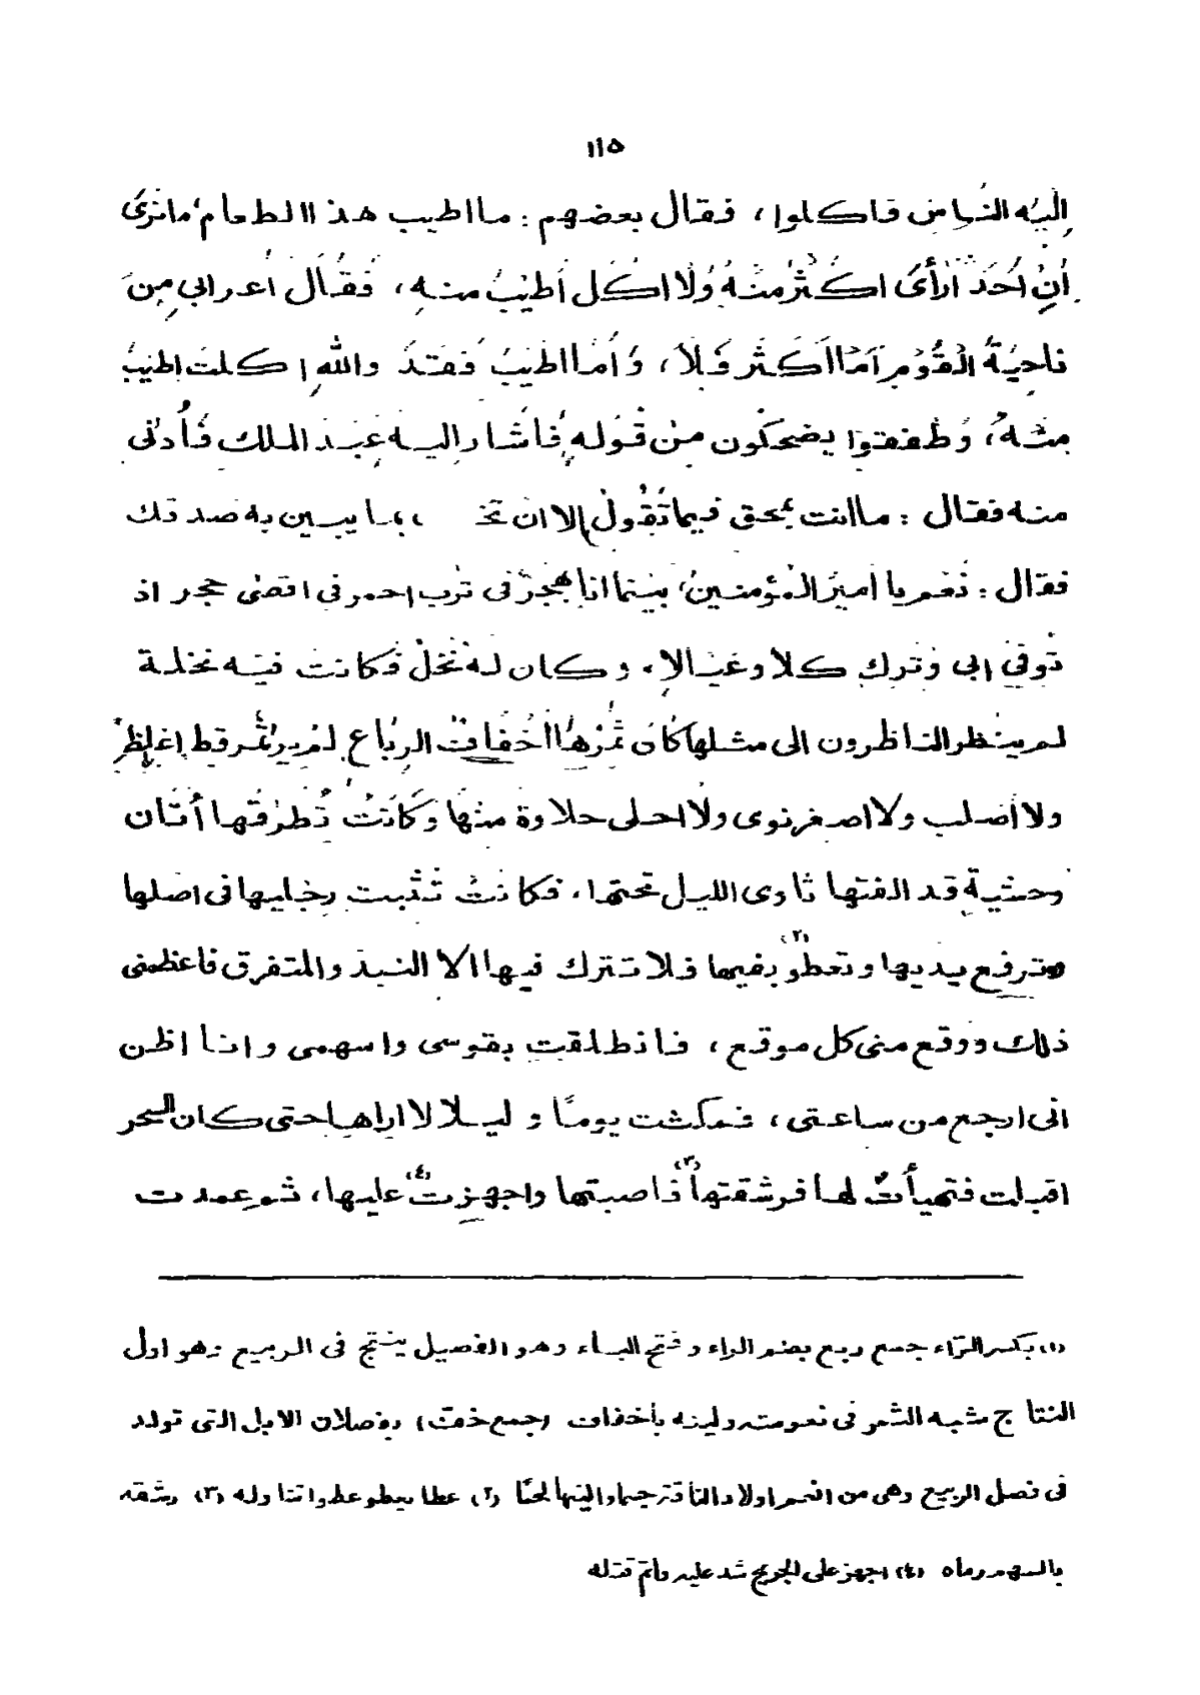 ١١٥
إليه الناس فاكلوا، فقال بعضهم: ما اطيب هذا الطعام، ما نرى
أن أحدا رأى اكثر منه ولا اكل أطيب منه، فقال أعرابي من
ناحية القوم أما اكثر فلا، وأما اطيب فقد والله اكلت اطيب
منه، وطفقوا يضحكون من قوله فأشار اليه عبد الملك فأدنى
منه فقال: ما انت بمحق فيما تقول إلا ان تخـ ـنى بما يبين به صدقك
فقال: نعم يا امير المؤمنين، بينما انا بهجر فى ترب احمر فى اقصى حجر اذ
توفى ابى وترك كلا وعيالا، وكان له نخل فكانت فيه نخلة
لم ينظر الناظرون الى مثلها كأن ثمرها أخفاف الرباع لم ير ثمر قط اغلظ
ولا أصلب ولا اصغر نوى ولا احلى حلاوة منها وكانت تطرقها أتان
وحشية قد الفتها تاوى الليل تحتها، فكانت تثبت رجليها فى اصلها
وترفع يديها وتعطو (٢) بفيها فلا تترك فيها الا النبذ والمتفرق فاعظمنى
ذلك ووقع منى كل موقع، فانطلقت بقوسى واسهمى وانا اظن
انى ارجع من ساعتى، فمكثت يوما و ليلا لا اراها حتى كان السحر
اقبلت فتهيأت لها فرشقتها (٣) فاصبتها واجهزت (٤) عليها، ثم عمدت
(١) بكسر الراء جمع ربع بضم الراء وفتح الباء وهو الفصيل ينتج فى الربيع وهو اول
النتاج مشبه الثمر فى نعومته ولينه بأخفاف (جمع خف) بفصلان الابل التى تولد
فى فصل الربيع وهى من انعم اولاد الناقة جسما والينها لحما (٢) عطا يعطو عطوا تناوله (٣) رشقه
بالسهم رماه (٤) اجهز على الجريح شد عليه وأتم قتله